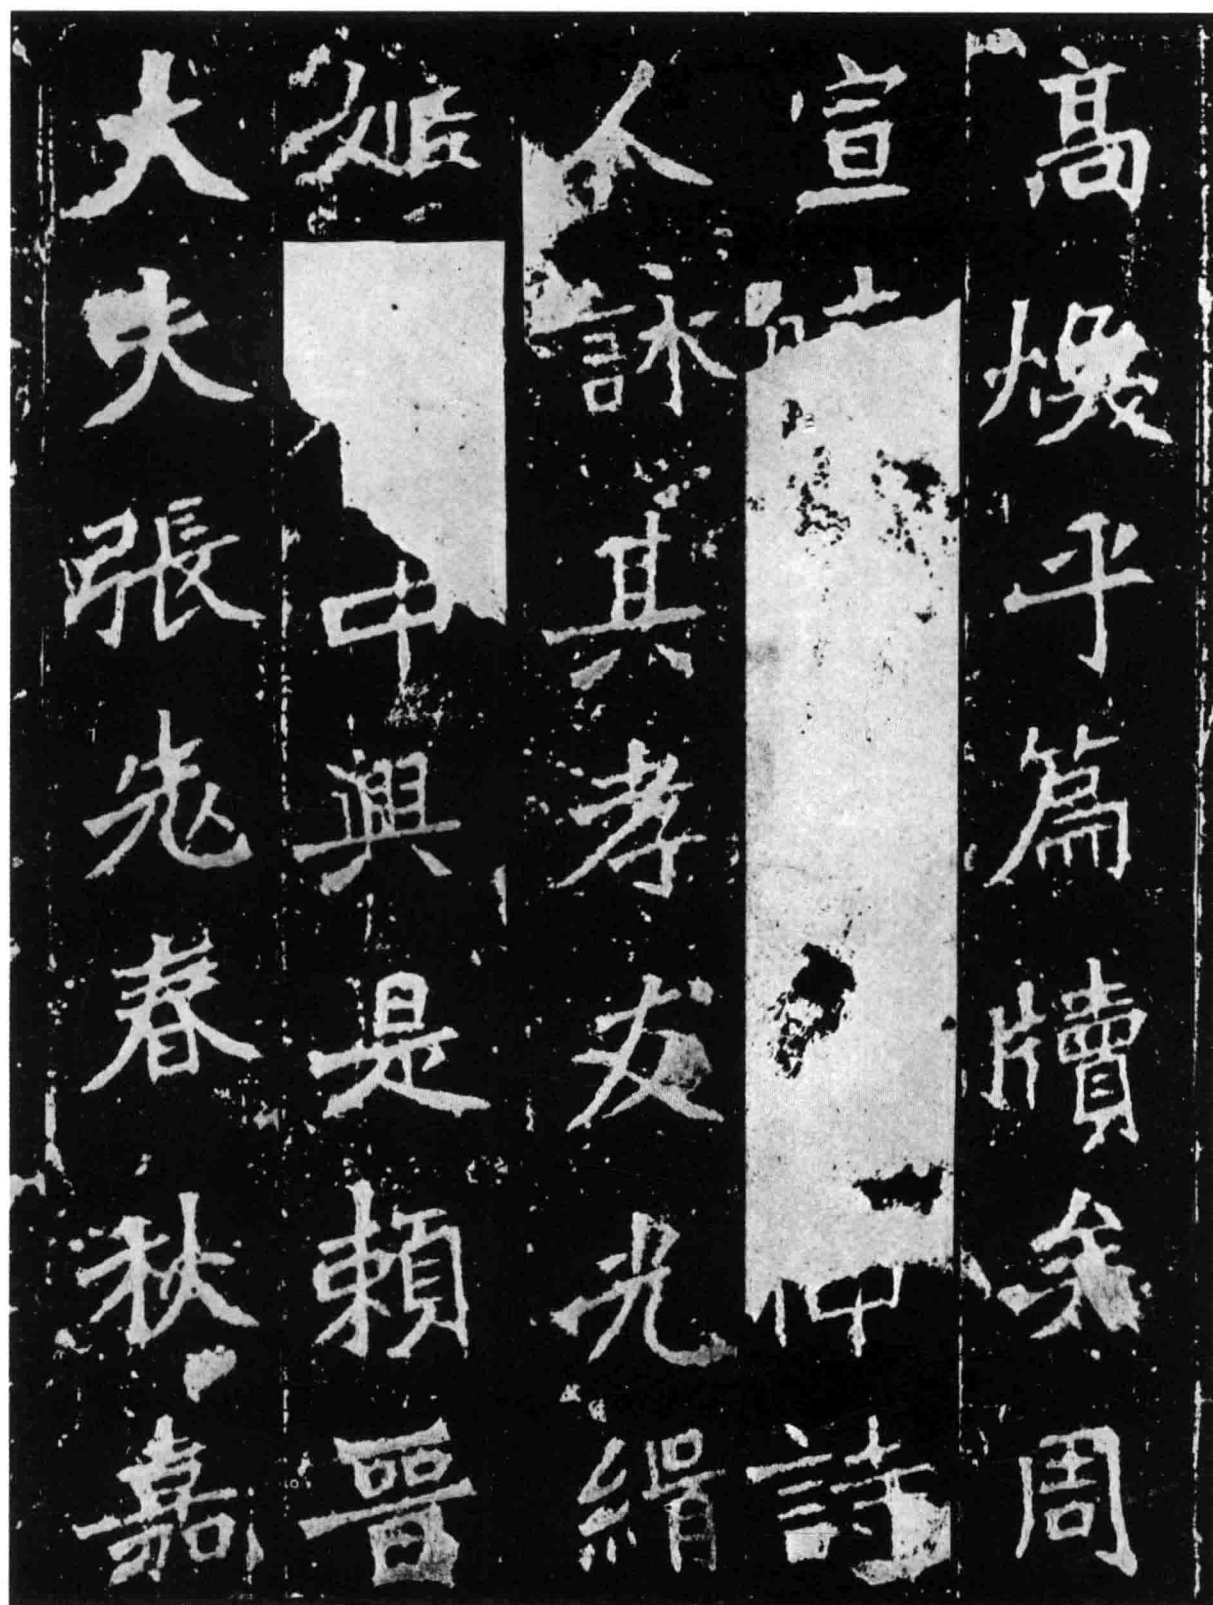 高煥乎篇牘矣周
宣仲詩
人詠其孝友光緝
姬中興是賴晉
大夫張老春秋嘉